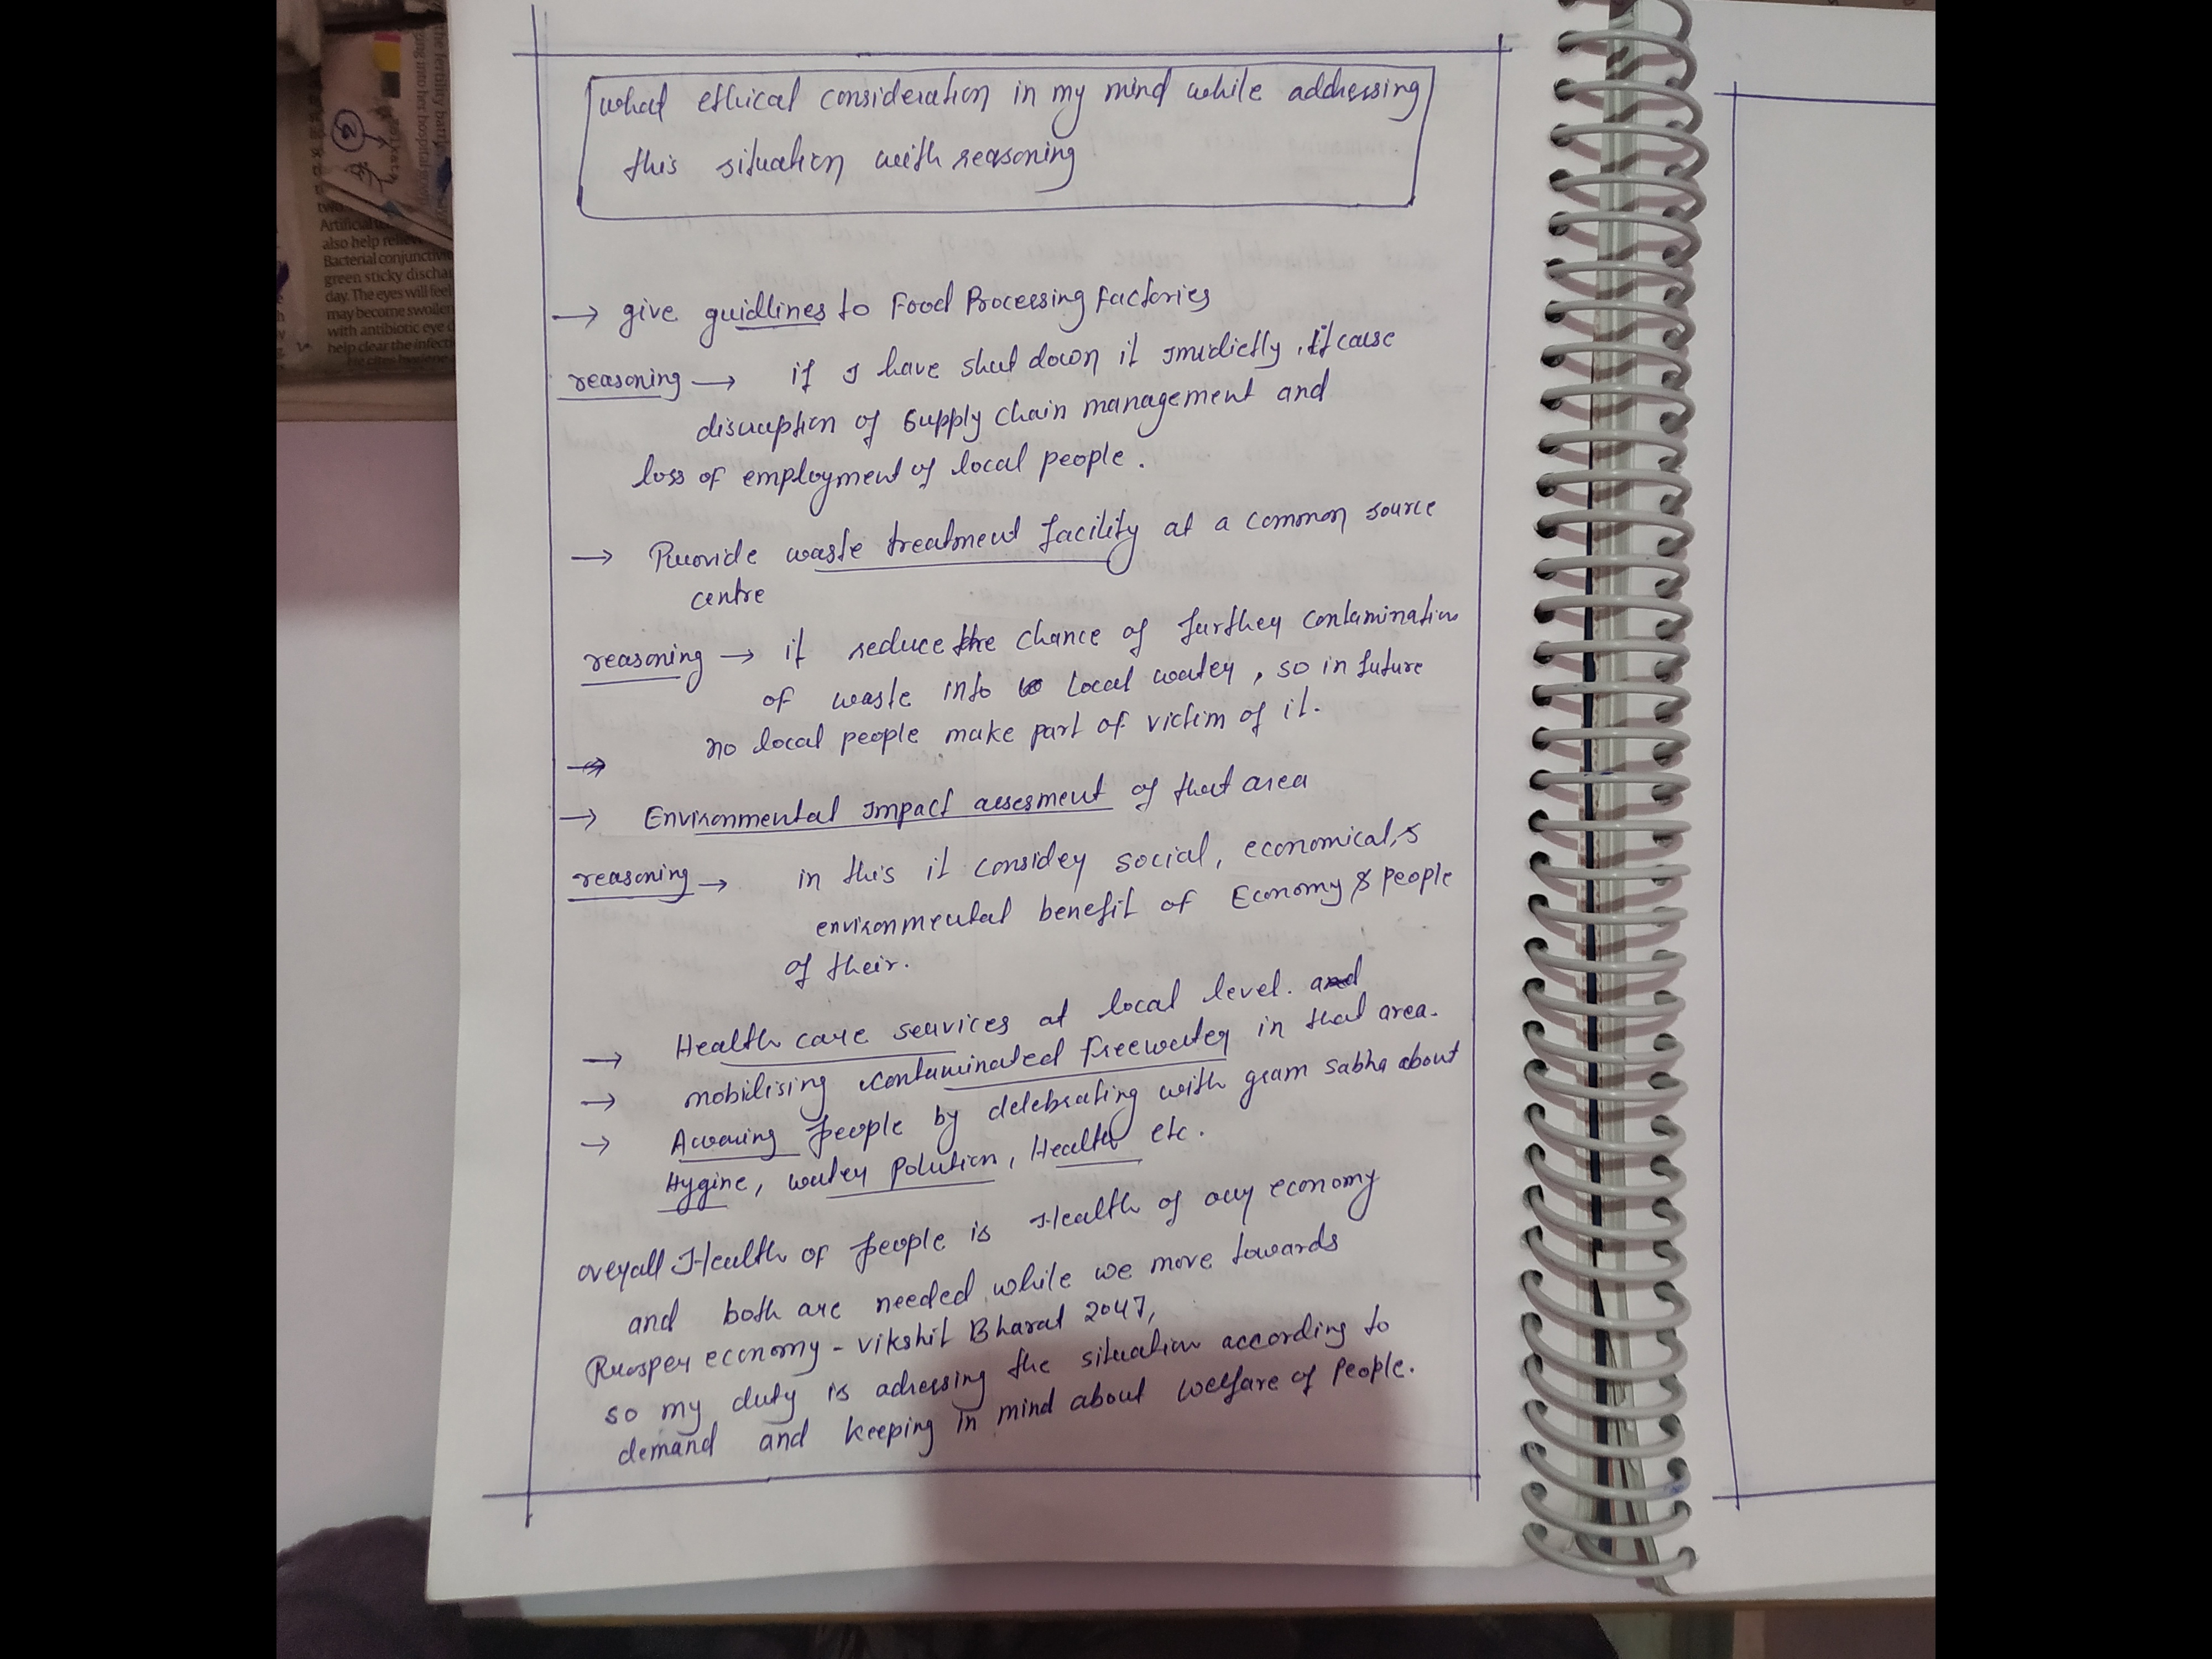 the fertility
ping into her hospital
2
two.
Artificial
also help
Bacterial
green sticky
day. The eyes will feel
may become swollen
with antibiotic eye
help clear the
what ethical consideration in my mind while addressing
this situation with reasoning
→ give guidlines to Food Processing factories
reasoning → if I have shut down it Imidietly, it cause
disruption of supply chain management and
loss of employment of local people.
→ Provide waste treatment facility at a common source
centre
reasoning → it reduce the chance of further contamination
of waste into local water, so in future
no local people make part of victim of it.
→ Environmental Impact assesment of that area
reasoning → in this it consider social, economical, &
environmental benefit of Economy & people
of their.
→ Health care services at local level.
→ mobilising contaminated free water in that area.
→ Awaring people by delebrating with gram sabha about
Hygine, water Polution, Health etc.
overall Health of people is Health of our economy
and both are needed while we move towards
Prosper economy - vikshit Bharat 2047,
so my duty is adressing the situation according to
demand and keeping in mind about welfare of people.